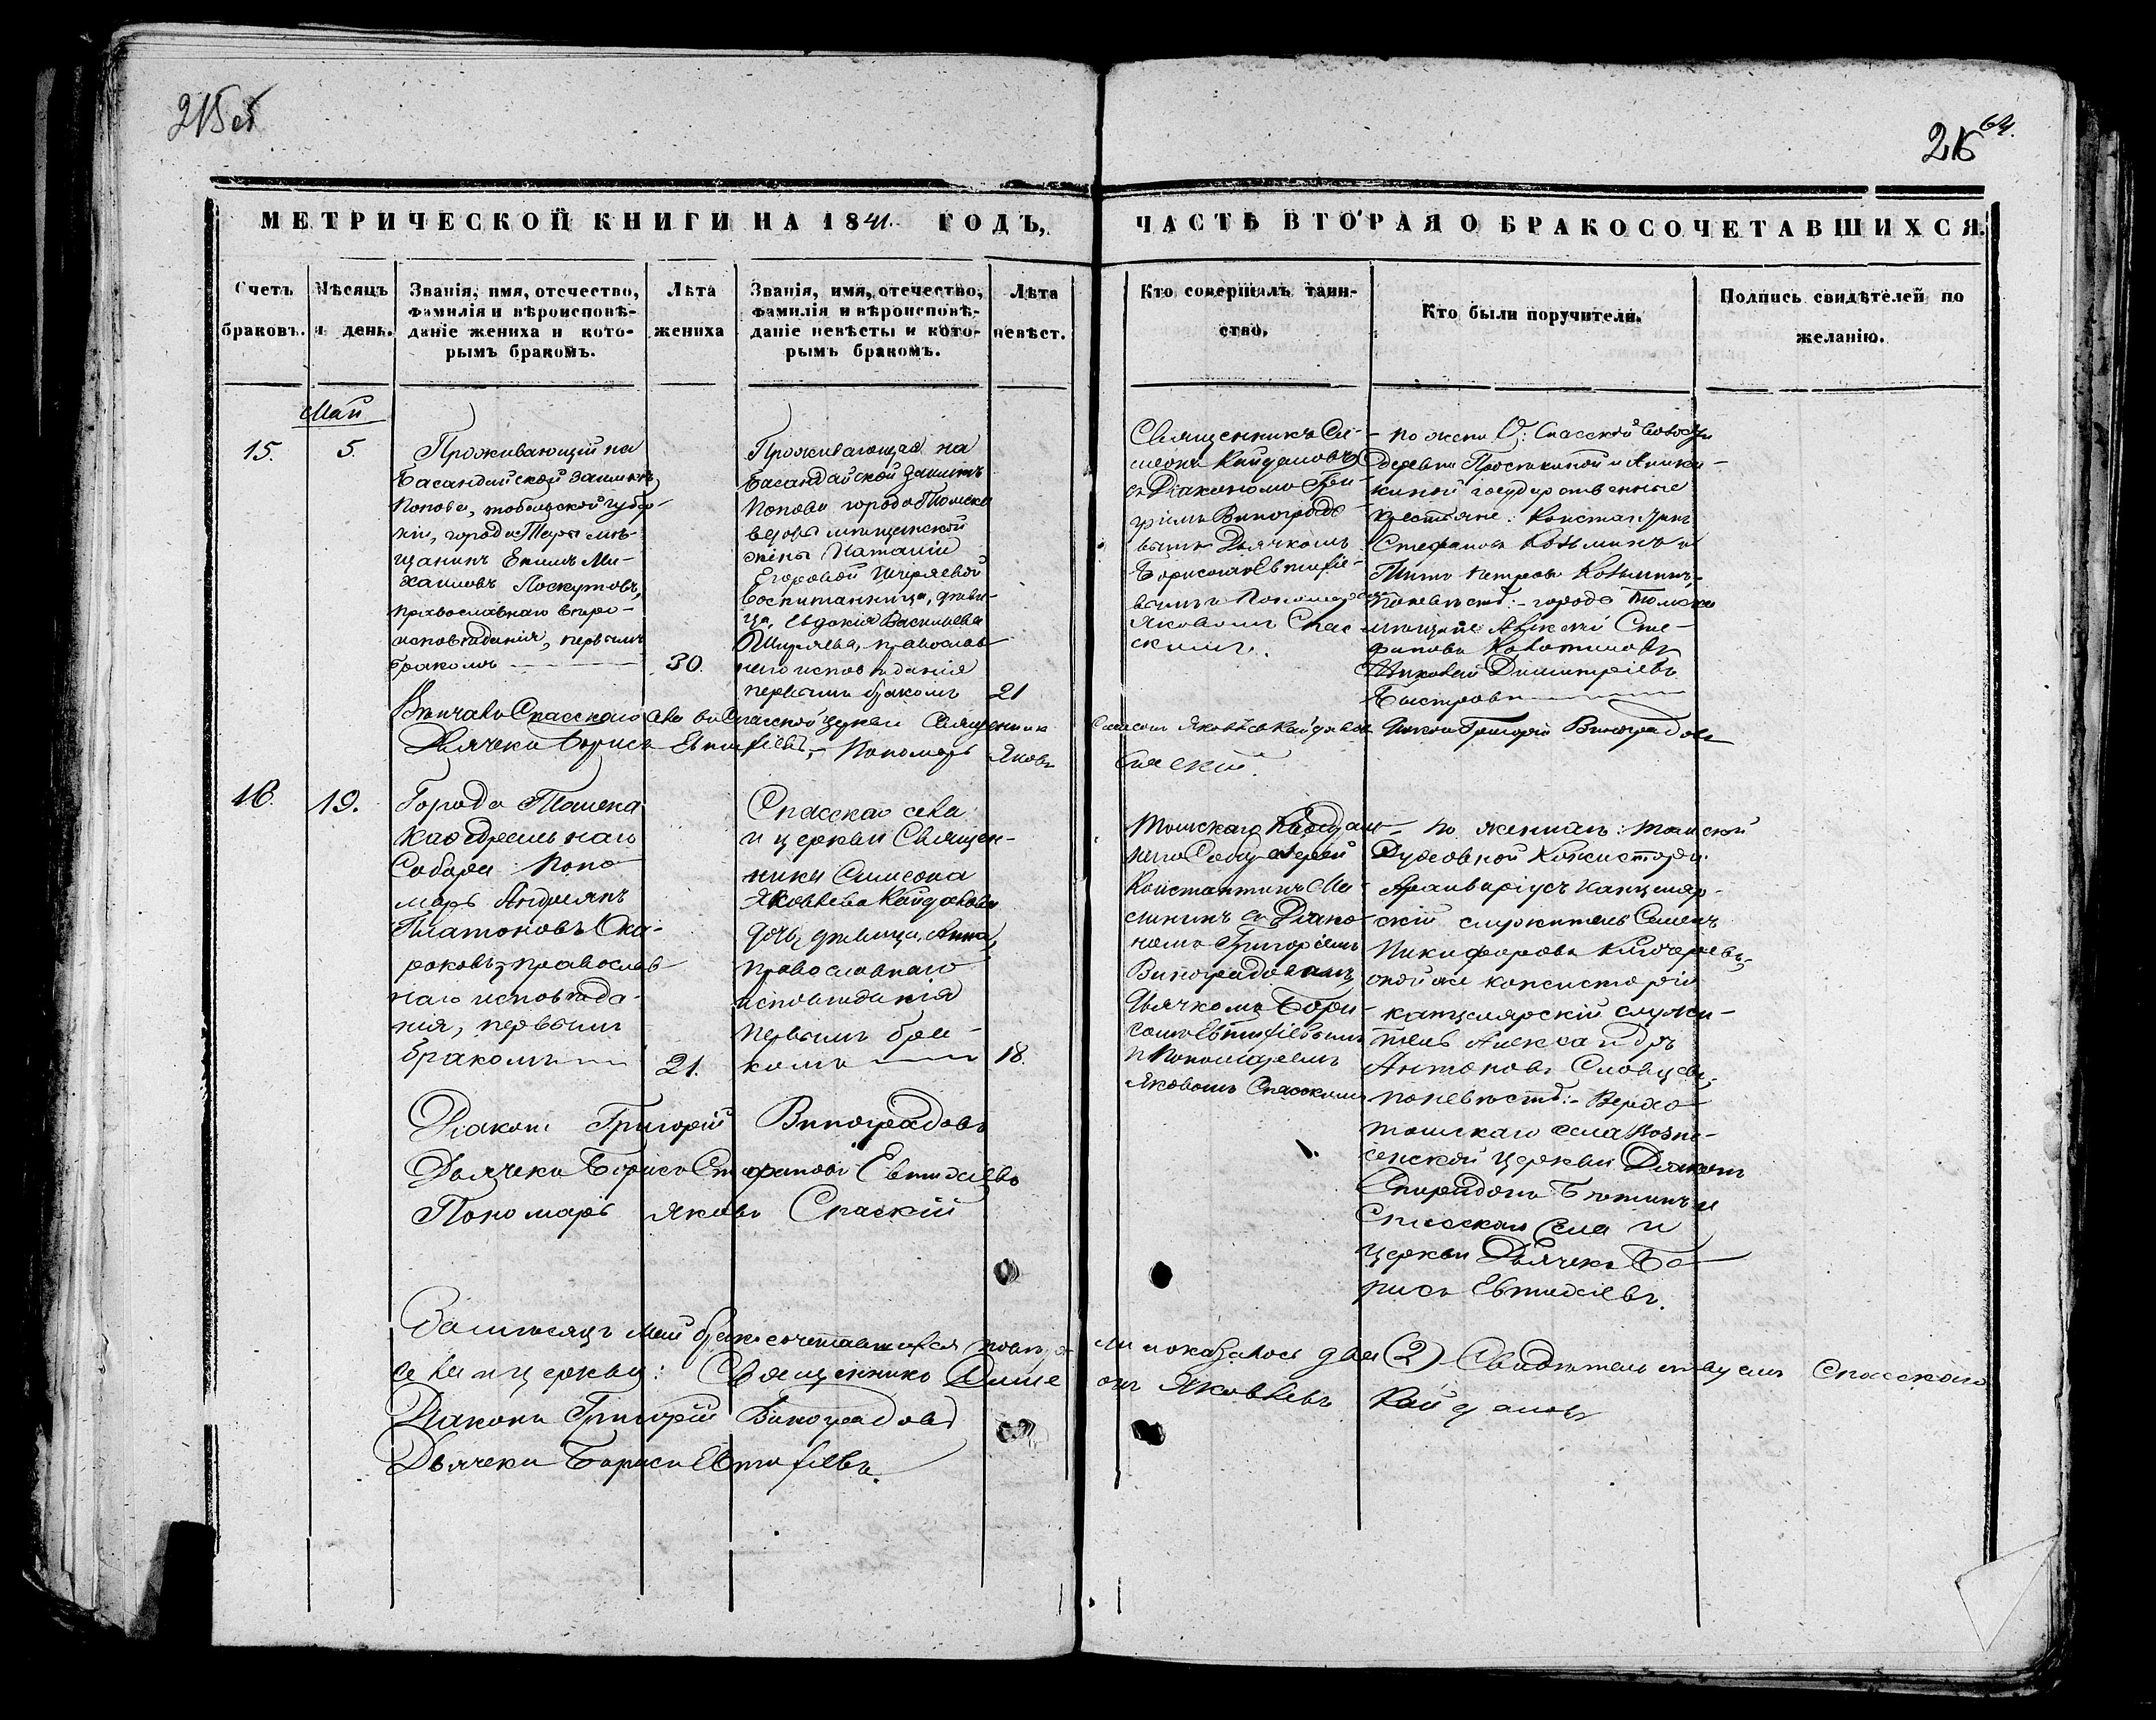 215 об
64.
216
МЕТРИЧЕСКОЙ КНИГИ НА 1841. ГОДЪ,
ЧАСТЬ ВТОРАЯ О БРАКОСОЧЕТАВШИХСЯ.
Счетъ браковъ.
Мѣсяцъ и день.
Званія, имя, отечество,
фамилія и вѣроисповѣ-
даніе жениха и кото-
рымъ бракомъ.
Лѣта
жениха
Званія, имя, отечество,
фамилія и вѣроисповѣ-
даніе невѣсты и кото-
рымъ бракомъ.
Лѣта
невѣст.
Кто совершалъ таин-
ство.
Кто были поручители.
Подпись свидѣтелей по
желанію.
Май
15.
5.
Проживающій на
Басандайской заимкѣ
Попова, тобольской губер-
ніи, города Тары мѣ-
щанинъ Екимъ Ми-
хаиловъ Лоскутовъ,
православнаго вѣро-
исповѣданія, первымъ
бракомъ
30.
Проживающая на
Басандайской заимкѣ
Попова города Томска
вдовы мѣщанской
жены Наталіи
Егоровой Ширяевой
воспитанница, дѣви-
ца, Евдокія Васильева
Ширяева, православ
наго исповѣданія
первымъ бракомъ
21
Священникъ Си-
меонъ Кайдаловъ
съ Діакономъ Гри-
горіемъ Виноградо
вымъ Дьячкомъ
Борисомъ Евтифіе-
вымъ и Пономаремъ
Яковомъ Спас
скимъ.
по жени: Спасской волости
деревни Просѣкиной и Аники-
киной государственные
крестьяне: Константинъ
Стефановъ Козьминъ и
Титъ Петровъ Козьминъ,
по невѣстѣ: города Томска
мѣщане Алексей Сте-
фановъ
Димитріевъ
Быстровъ
Вѣнчавъ Спасскаго села въ Спасской церкви Священникъ Симеонъ Яковлевъ Кайдаловъ Діаконъ Григорій Виноградовъ
Дьячекъ Борисъ Евтифіевъ, Пономарь Яковъ Спаскій.
16.
19.
Города Томска
каѳедральнаго
Собора поно
марь Андреянъ
Платоновъ Ска-
роковъ, православ
наго исповѣда-
нія, первымъ
бракомъ
21.
Спасскаго села
и церкви Священ-
ника Симеона
Яковлева Кайдалова
дочь дѣвица, Анна,
православнаго
исповѣданія
первымъ бра-
комъ
18.
Томскаго Каѳедраль
наго Собора Іерей
Константинъ Ми-
съ Діако-
номъ Григоріемъ
Виноградовымъ
дьячкомъ Бори-
сомъ Евтифіевымъ
и Пономаремъ
Яковомъ Спасскимъ
по женихѣ: томской
Духовной Консисторіи
Архиваріусъ канцеляр-
скій служитель Семенъ
Никифоровъ
оной же консисторіи
канцелярскій служи-
тель Александръ
Антоновъ Словцовъ,
по невѣстѣ: Верхо
томскаго села Возне-
сенской церкви Діаконъ
Спиридонъ Бютинъ и
Спасскаго села и
церкви Дьячекъ Бо
рисъ Евтихіевъ.
Діаконъ Григорій Виноградовъ
Дьячекъ Борисъ Стефановъ Евтихіевъ
Пономарь Яковъ Спаскій
За мѣсяцъ Май бракосочетавшихся показалось два (2) Свидѣтельствуемъ Спасскаго
села и церкви: Священникъ Симеонъ Яковлевъ Кайдаловъ
Діаконъ Григорій Виноградовъ
Дьячекъ Борисъ Евтифіевъ.